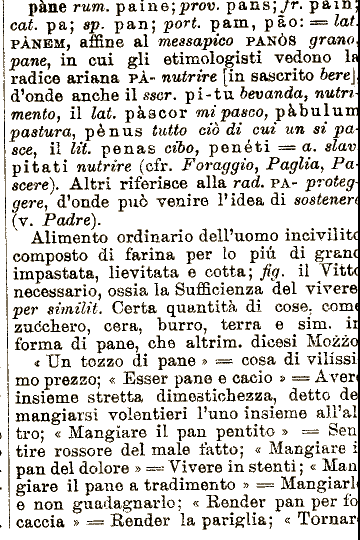 pàne rum. paine; prov. pans; fr. pain;
cat. pa; sp. pan; port. pam, pão: = lat.
PÀNEM, affine al messapico PANÒS grano,
pane, in cui gli etimologisti vedono la
radice ariana PÀ- nutrire [in sascrito bere]
d'onde anche il sscr. pi-tu bevanda, nutri-
mento, il lat. pàscor mi pasco, pàbulum
pastura, pènus tutto ciò di cui un si pa-
sce, il lit. penas cibo, penéti = a. slav
pitati nutrire (cfr. Foraggio, Paglia, Pa-
scere). Altri riferisce alla rad. PA- proteg-
gere, d'onde può venire l'idea di sostenere
(v. Padre).
Alimento ordinario dell'uomo incivilito
composto di farina per lo piú di grano
impastata, lievitata e cotta; fig. il Vitto
necessario, ossia la Sufficienza del vivere
per similit. Certa quantità di cose, come
zucchero, cera, burro, terra e sim. in
forma di pane, che altrim. dicesi Mozzo
« Un tozzo di pane » = cosa di vilissi
mo prezzo; « Esser pane e cacio » = Aver
insieme stretta dimestichezza, detto de
mangiarsi volentieri l'uno insieme all'al
tro; « Mangiare il pan pentito » = Sen
tire rossore del male fatto; « Mangiare i
pan del dolore » = Vivere in stenti; « Man
giare il pane a tradimento » = Mangiarlo
e non guadagnarlo; « Render pan per fo
caccia » = Render la pariglia; « Tornar